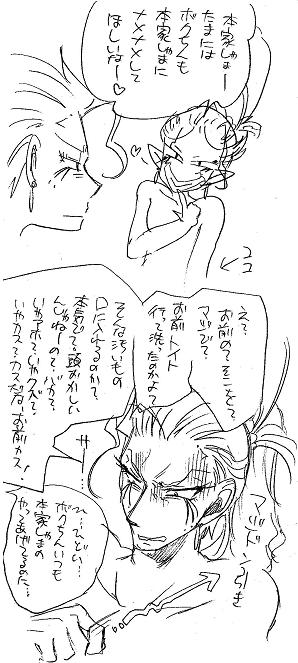 本家しゃまー
たまには
ボクちんも
本家しゃまに
ナメナメして
ほしいなー♡
ココ
え？
お前のそこをて？
マジで？
お前 トイレ
行って洗ったのかよ？
そんな汚いもの
口に入れるのか？
本気で？頭おかしい
んじゃねーの？バカ？
いやアホ？いやクズ？
いやカス？カスだなお前カス！
マジドン引き
ひ…ひどい…
ボクちんいつも
本家しゃまの
やってあげてるのに…